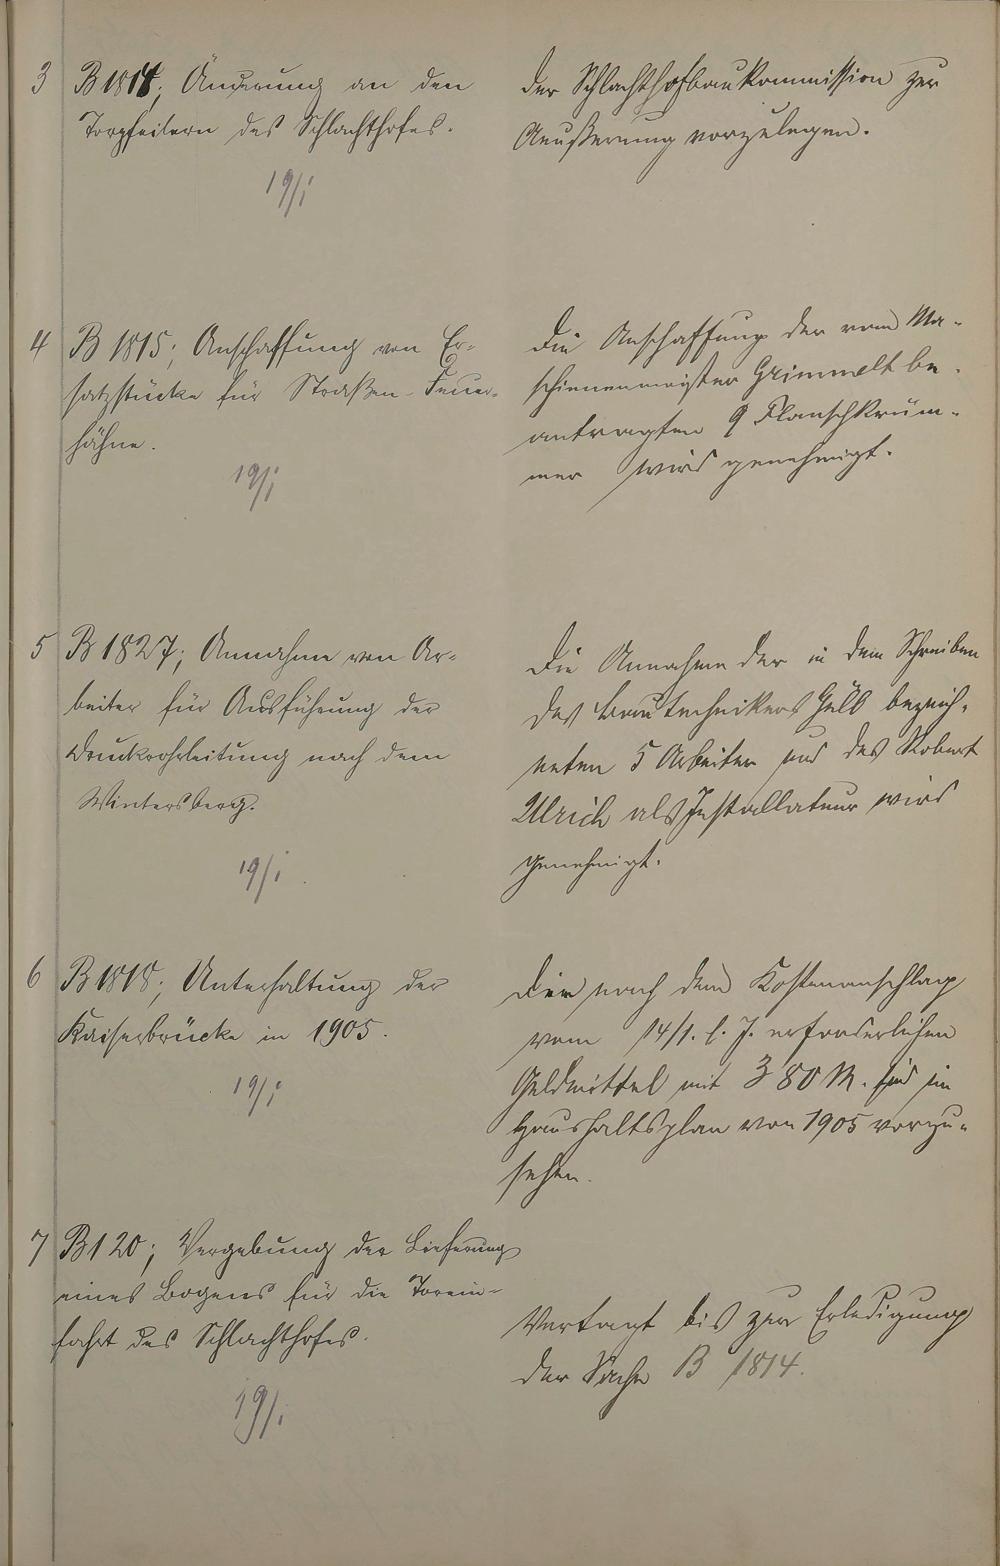 3 B 1814; Änderung an den
Torpfeilern des Schlachthofes.
19/I
Der Schlachthofbaukommission zur
Aeußerung vorzulegen.
4 B 1815; Anschaffung von Er-
satzstücke für Straßen-Feuer-
hähne.
19/I
Die Anschaffung der vom Ma-
schienenmeister Grimmelt be-
antragten 9 Flanschkrüm-
mer wird genehmigt.
5 B 1827; Annahme von Ar-
beiter für Ausführung der
Druckrohrleitung nach dem
Wintersberg.
19/I
Die Annahme der in dem Schreiben
des Bautechnikers Hülb bezeich-
neten 5 Arbeiter und des Robert
Ulrich als Installateur wird
genehmigt.
6 B 1818; Unterhaltung der
Kaiserbrücke in 1905.
19/I
Die nach dem Kostenanschlag
vom 14/1. l. J. erforderlichen
Geldmittel mit 380 M. sind im
Haushaltsplan von 1905 vorzu-
sehen.
7 B 120; Vergebung der Lieferung
eines Bogens für die Torein-
fahrt des Schlachthofes.
19/I
Vertagt bis zur Erledigung
der Sache B 1814.